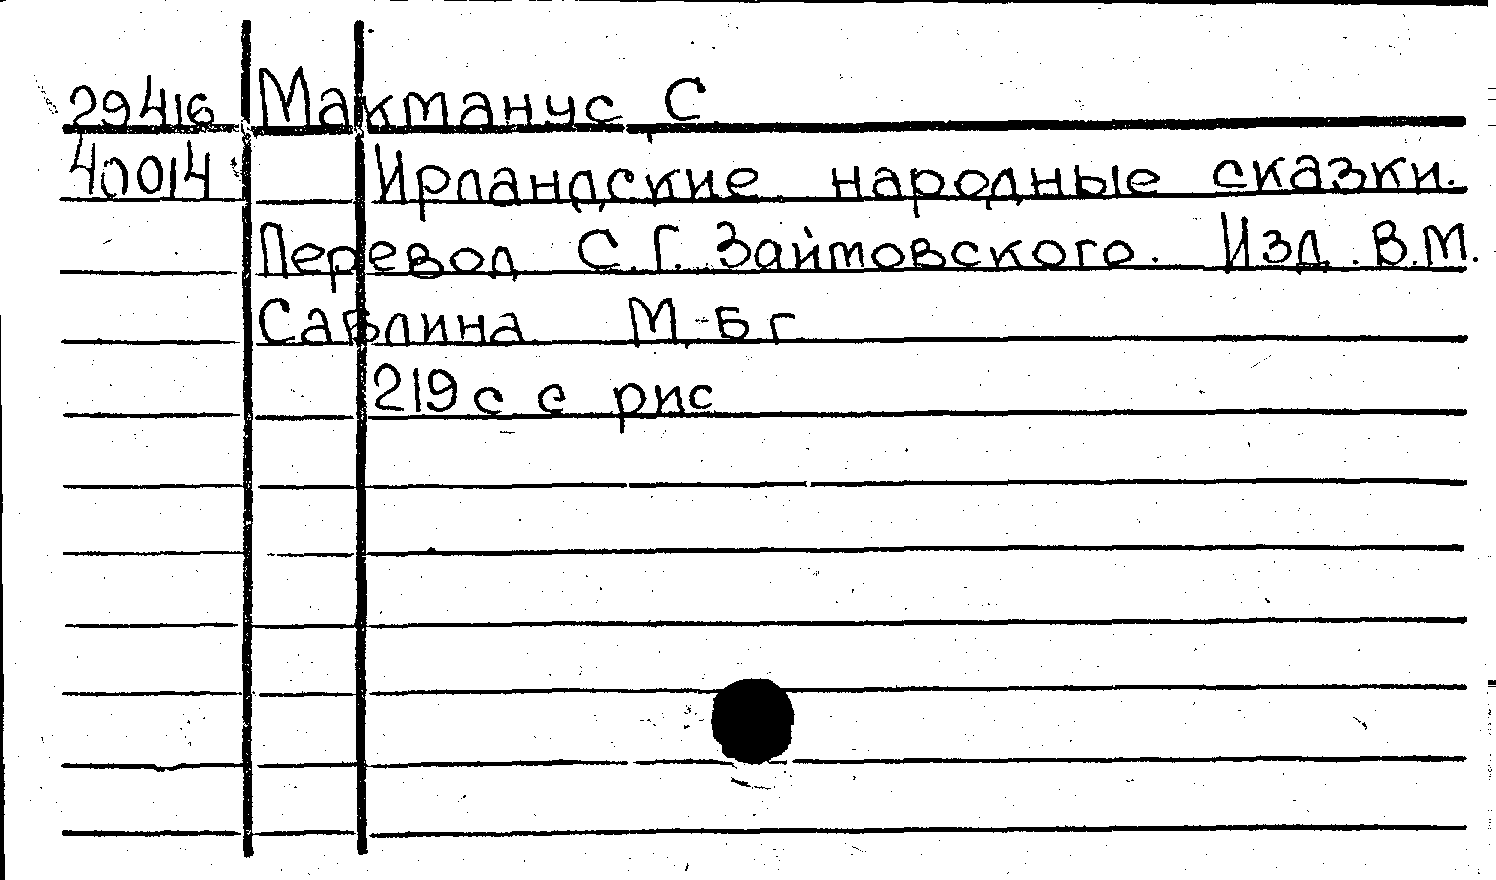 29416 Макманус С
40014 Ирландские народные сказки.
Перевод С.Г. Займовского. Изд. В.М.
Саблина М. Б г
219 с с рис